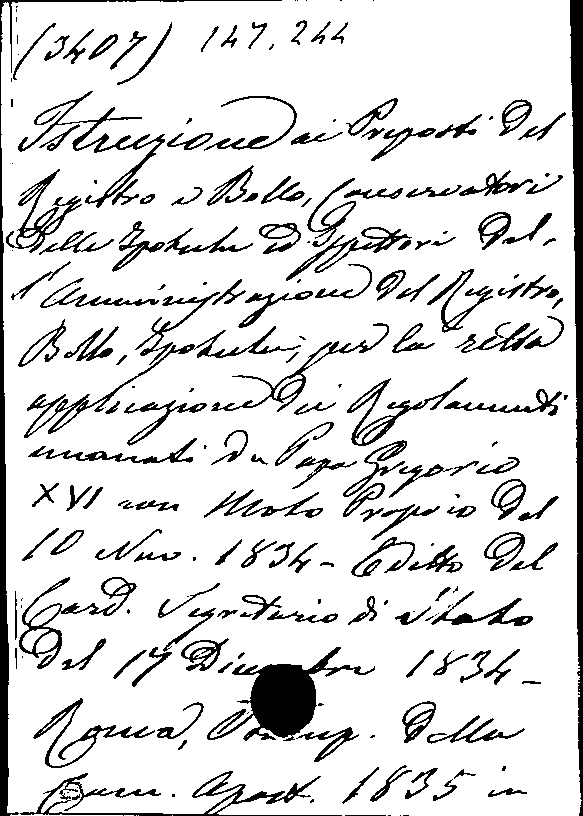 (3407) 147,244
Istruzione ai Preposti del
Registro e Bollo, Conservatori
delle Ipoteche ed Ispettori del-
l'Amministrazione del Registro,
Bollo, Ipoteche, per la retta
applicazione dei Regolamenti
emanati da Papa Gregorio
XVI con Moto Proprio del
10 Nov. 1834 - Editto del
Card. Segretario di Stato
del 17 Dicembre 1834 -
Roma, Stamp. della
Cam. Apost. 1835 in